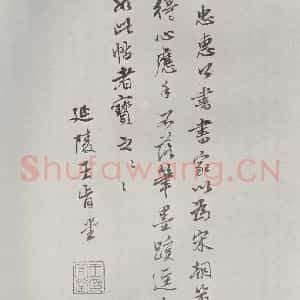 忠惠公書書家以為宋朝第
得心應手不落筆墨蹊逕
如此帖者寶之〻〻
延陵王肯堂
Shufawang.CN